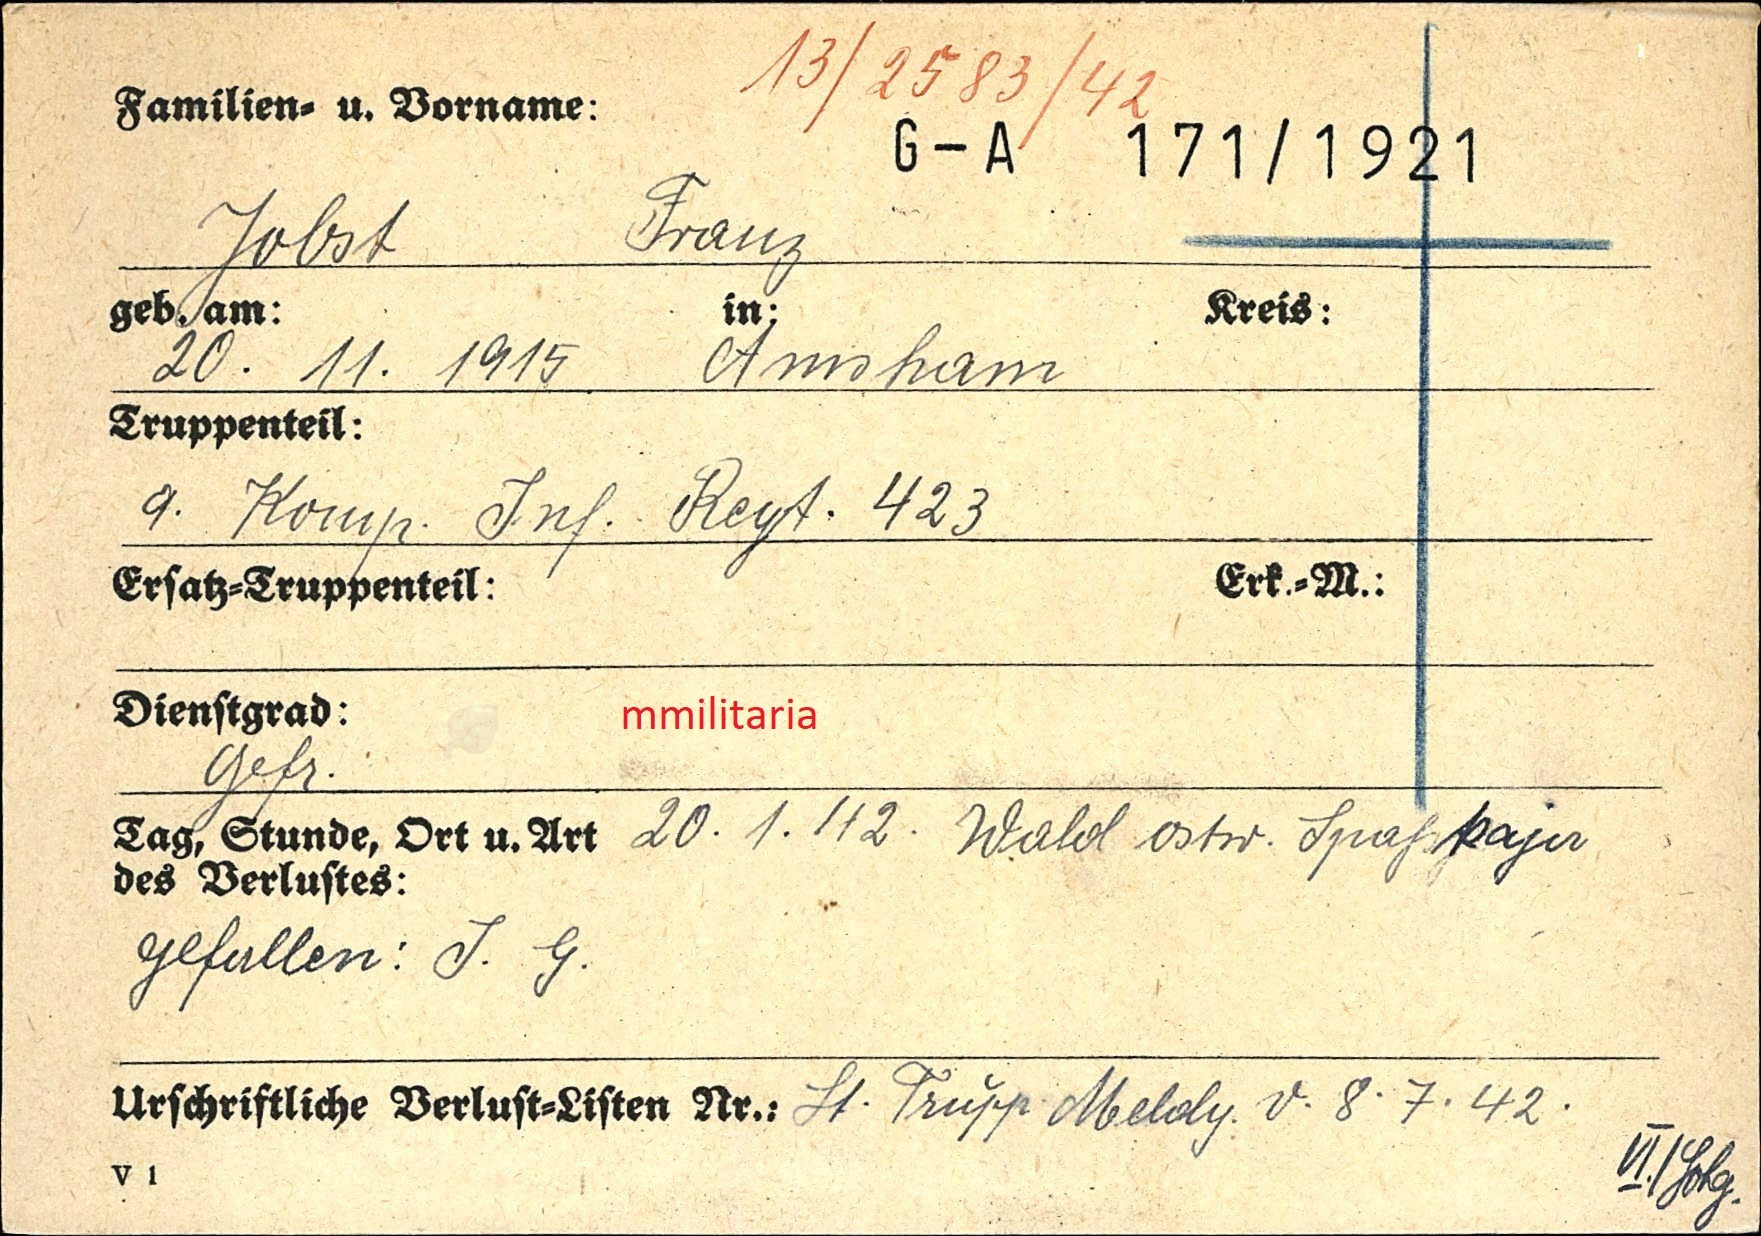 13/2583/42
Familien- u. Vorname:
G-A 171/1921
Jobst Franz
geb. am: in: Kreis:
20. 11. 1915 Amsham
Truppenteil:
9. Komp. Inf. Regt. 423
Ersatz-Truppenteil: Erk.-M.:
Dienstgrad:
mmilitaria
Gefr.
Tag, Stunde, Ort u. Art 20. 1. 42. Wald ostw.
des Verlustes:
gefallen: I. G.
Urschriftliche Verlust-Listen Nr.: Lt. Trupp Meldg. v. 8. 7. 42.
V 1
VI./